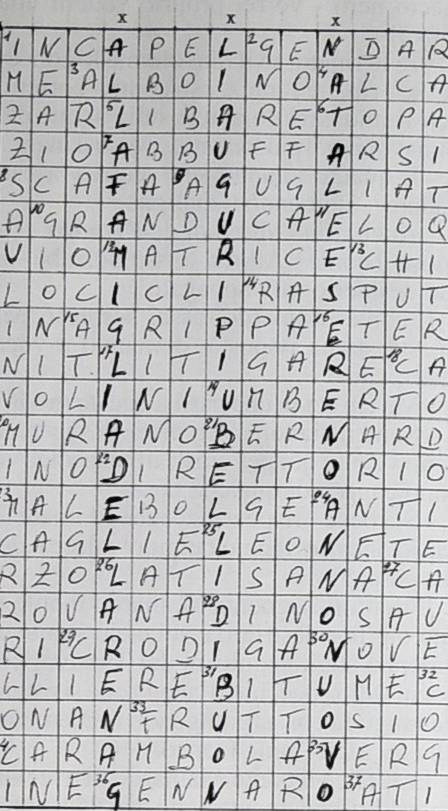 x x x
1 I N C A P E L 2 G E N D A R
M E 3 A L B O I N O 4 A L C A
Z A R 5 L I B A R E 6 T O P A
Z I O 7 A B B U F F A R S I
8 S C A F A 9 A G U G L I A T
A 10 G R A N D U C A 11 E L O Q
V I O 12 M A T R I C E 13 C H I
L O C I C L I 14 R A S P U T
I N 15 A G R I P P A 16 E T E R
N I T 17 L I T I G A R E 18 C A
V O L I N I 19 U M B E R T O
20 M U R A N O 21 B E R N A R D
I N O 22 D I R E T T O R I O
23 M A L E B O L G E 24 A N T I
C A G L I E 25 L E O N E T E
R Z O 26 L A T I S A N A 27 C A
R O V A N A 28 D I N O S A U
R I 29 C R O D I G A 30 N O V E
L L I E R E 31 B I T U M E 32 C
O N A N 33 F R U T T O S I O
34 C A R A M B O L A 35 V E R G
I N E 36 G E N N A R O 37 A T I